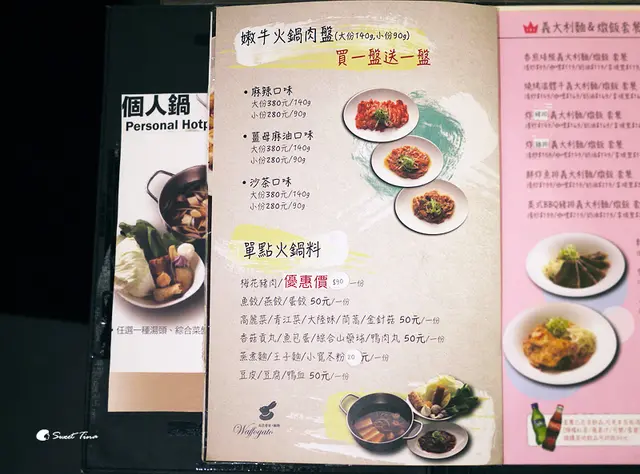 個人鍋
Personal Hotp
任選一種湯頭、綜合菜盤
嫩牛火鍋肉盤(大份140g,小份90g)
買一盤送一盤
• 麻辣口味
大份380元/140g
小份280元/90g
• 薑母麻油口味
大份380元/140g
小份280元/90g
• 沙茶口味
大份380元/140g
小份280元/90g
單點火鍋料
梅花豬肉/ 優惠價 $90 一份
魚餃/燕餃/蛋餃 50元/一份
高麗菜/青江菜/大陸妹/茼蒿/金針菇 50元/一份
香菇貢丸/魚包蛋/綜合山藥球/鴨肉丸 50元/一份
蒸煮麵/王子麵/小寬冬粉 20元/一份
豆皮/豆腐/鴨血 50元/一份
Waffogato
義大利麵&燉飯 套餐
義大利麵/燉飯 套餐
義大利麵/燉飯 套餐
炸 義大利麵/燉飯 套餐
炸 義大利麵/燉飯 套餐
鮮炸魚排義大利麵/燉飯 套餐
美式BBQ豬排義大利麵/燉飯 套餐
Sweet Tina